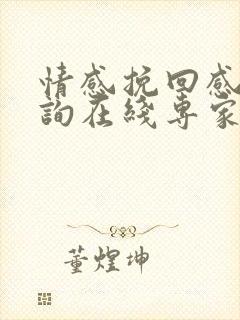 情感挽回感
詢在綫專家
董煌坤